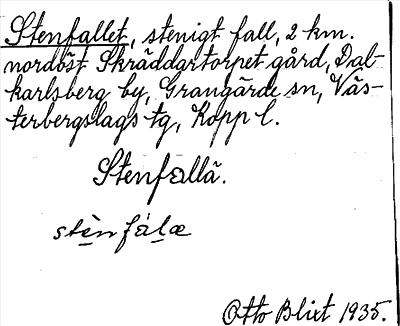 Stenfallet, stenigt fall, 2 km.
nordöst Skräddartorpet gård, Dal-
karlsberg by, Grangärde sn, Väs-
terbergslags tg, Kopp l.
Stenfallä.
stènfálæ
Otto Blixt 1935.